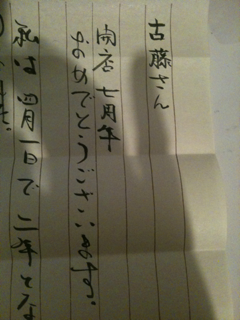 古藤さん
開店七周年
おめでとうございます。
私は四月一日で二年とな